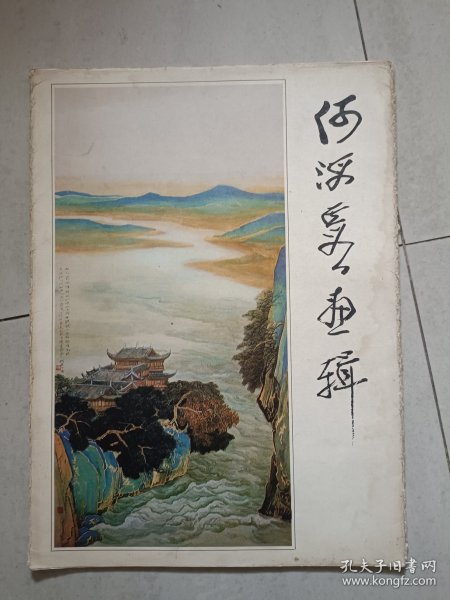 何海霞画辑
孔夫子旧书网
www.kongfz.com